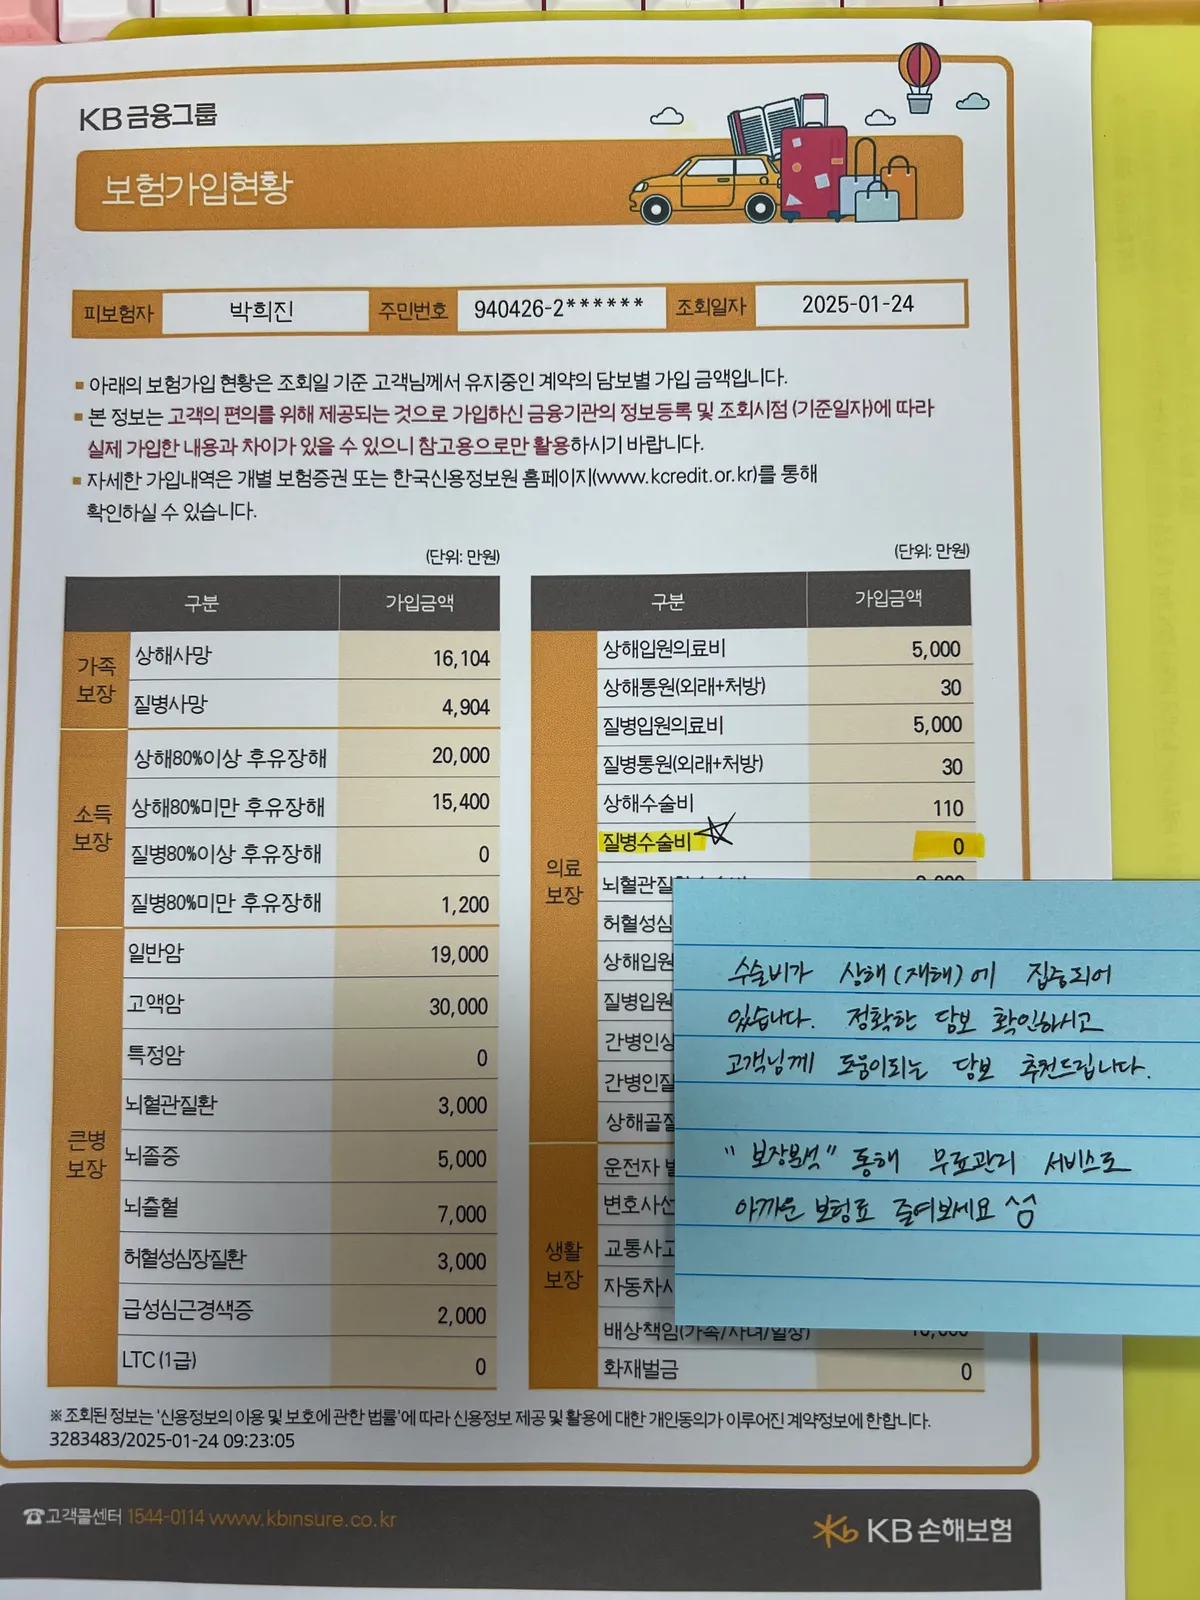 KB금융그룹
보험가입현황
피보험자 박희진 주민번호 940426-2****** 조회일자 2025-01-24
▪ 아래의 보험가입 현황은 조회일 기준 고객님께서 유지중인 계약의 담보별 가입 금액입니다.
▪ 본 정보는 고객의 편의를 위해 제공되는 것으로 가입하신 금융기관의 정보등록 및 조회시점 (기준일자)에 따라
실제 가입한 내용과 차이가 있을 수 있으니 참고용으로만 활용하시기 바랍니다.
▪ 자세한 가입내역은 개별 보험증권 또는 한국신용정보원 홈페이지(www.kcredit.or.kr)를 통해
확인하실 수 있습니다.
(단위: 만원)
구분 가입금액
가족
보장
상해사망 16,104
질병사망 4,904
소득
보장
상해80%이상 후유장해 20,000
상해80%미만 후유장해 15,400
질병80%이상 후유장해 0
질병80%미만 후유장해 1,200
큰병
보장
일반암 19,000
고액암 30,000
특정암 0
뇌혈관질환 3,000
뇌졸중 5,000
뇌출혈 7,000
허혈성심장질환 3,000
급성심근경색증 2,000
LTC (1급) 0
(단위: 만원)
구분 가입금액
의료
보장
상해입원의료비 5,000
상해통원(외래+처방) 30
질병입원의료비 5,000
질병통원(외래+처방) 30
상해수술비 110
질병수술비 0
뇌혈관질
허혈성심
상해입원
질병입원
간병인상
간병인질
상해골절
생활
보장
운전자
변호사선
교통사고
자동차사
배상책임(가족/자녀/일상) 10,000
화재벌금 0
수술비가 상해(재해)에 집중되어
있습니다. 정확한 담보 확인하시고
고객님께 도움이되는 담보 추천드립니다.
"보장분석" 통해 무료관리 서비스로
아까운 보험료 줄여보세요 ^^
※ 조회된 정보는 '신용정보의 이용 및 보호에 관한 법률'에 따라 신용정보 제공 및 활용에 대한 개인동의가 이루어진 계약정보에 한합니다.
3283483/2025-01-24 09:23:05
☎고객콜센터 1544-0114 www.kbinsure.co.kr
KB손해보험